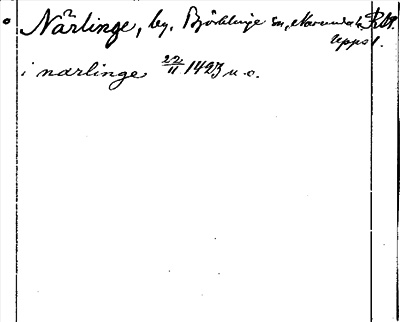 Närlinge, by, Björklinge sn, Norunda h.
Upps l.
i narlinge 22/11 1423 u. o.